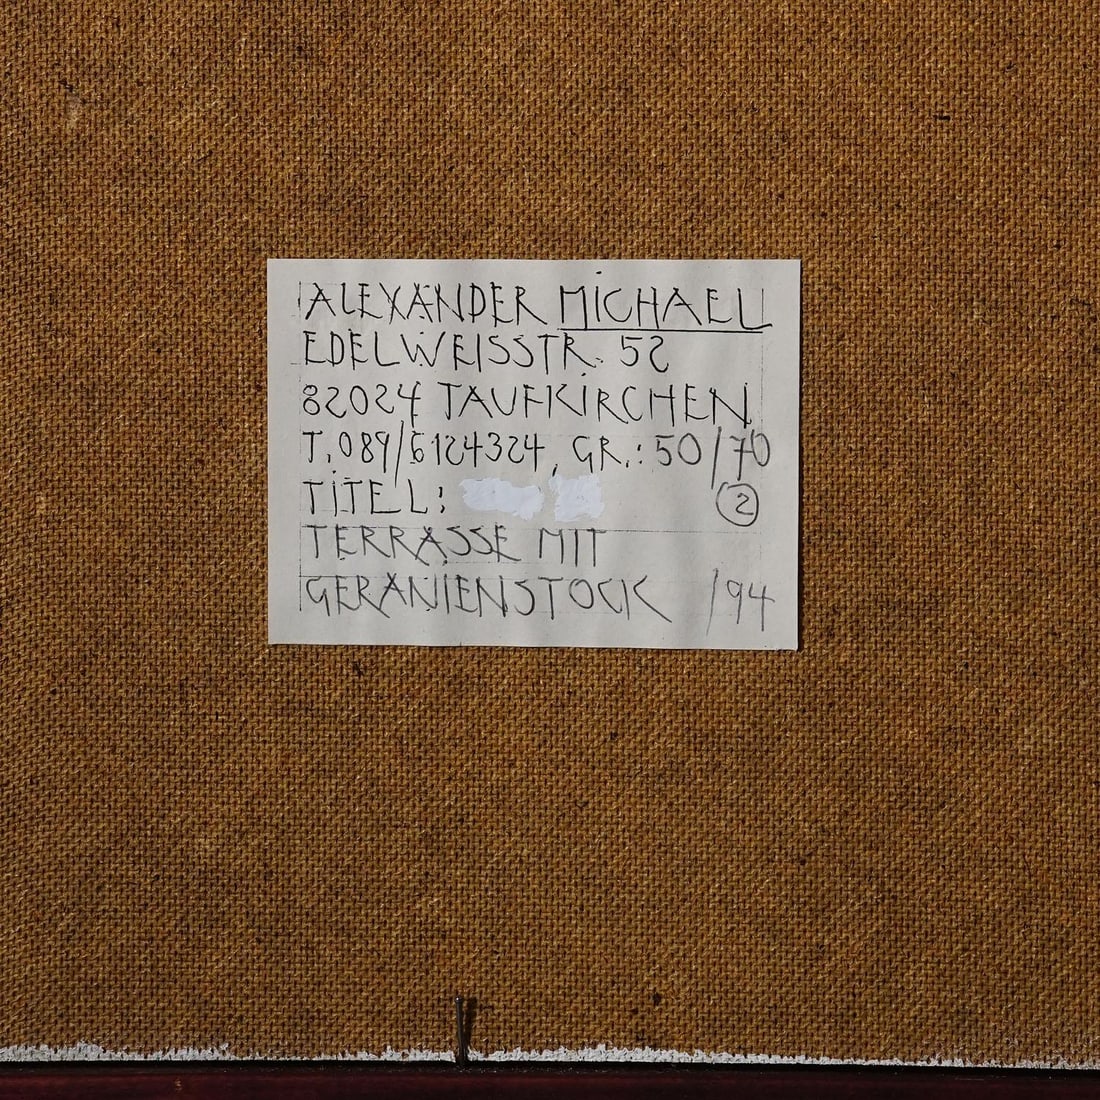 ALEXANDER MICHAEL
EDELWEISSTR. 52
82024 TAUFKIRCHEN
T. 089/6124324, GR.: 50/70
TITEL: 2
TERRASSE MIT
GERANIENSTOCK /94